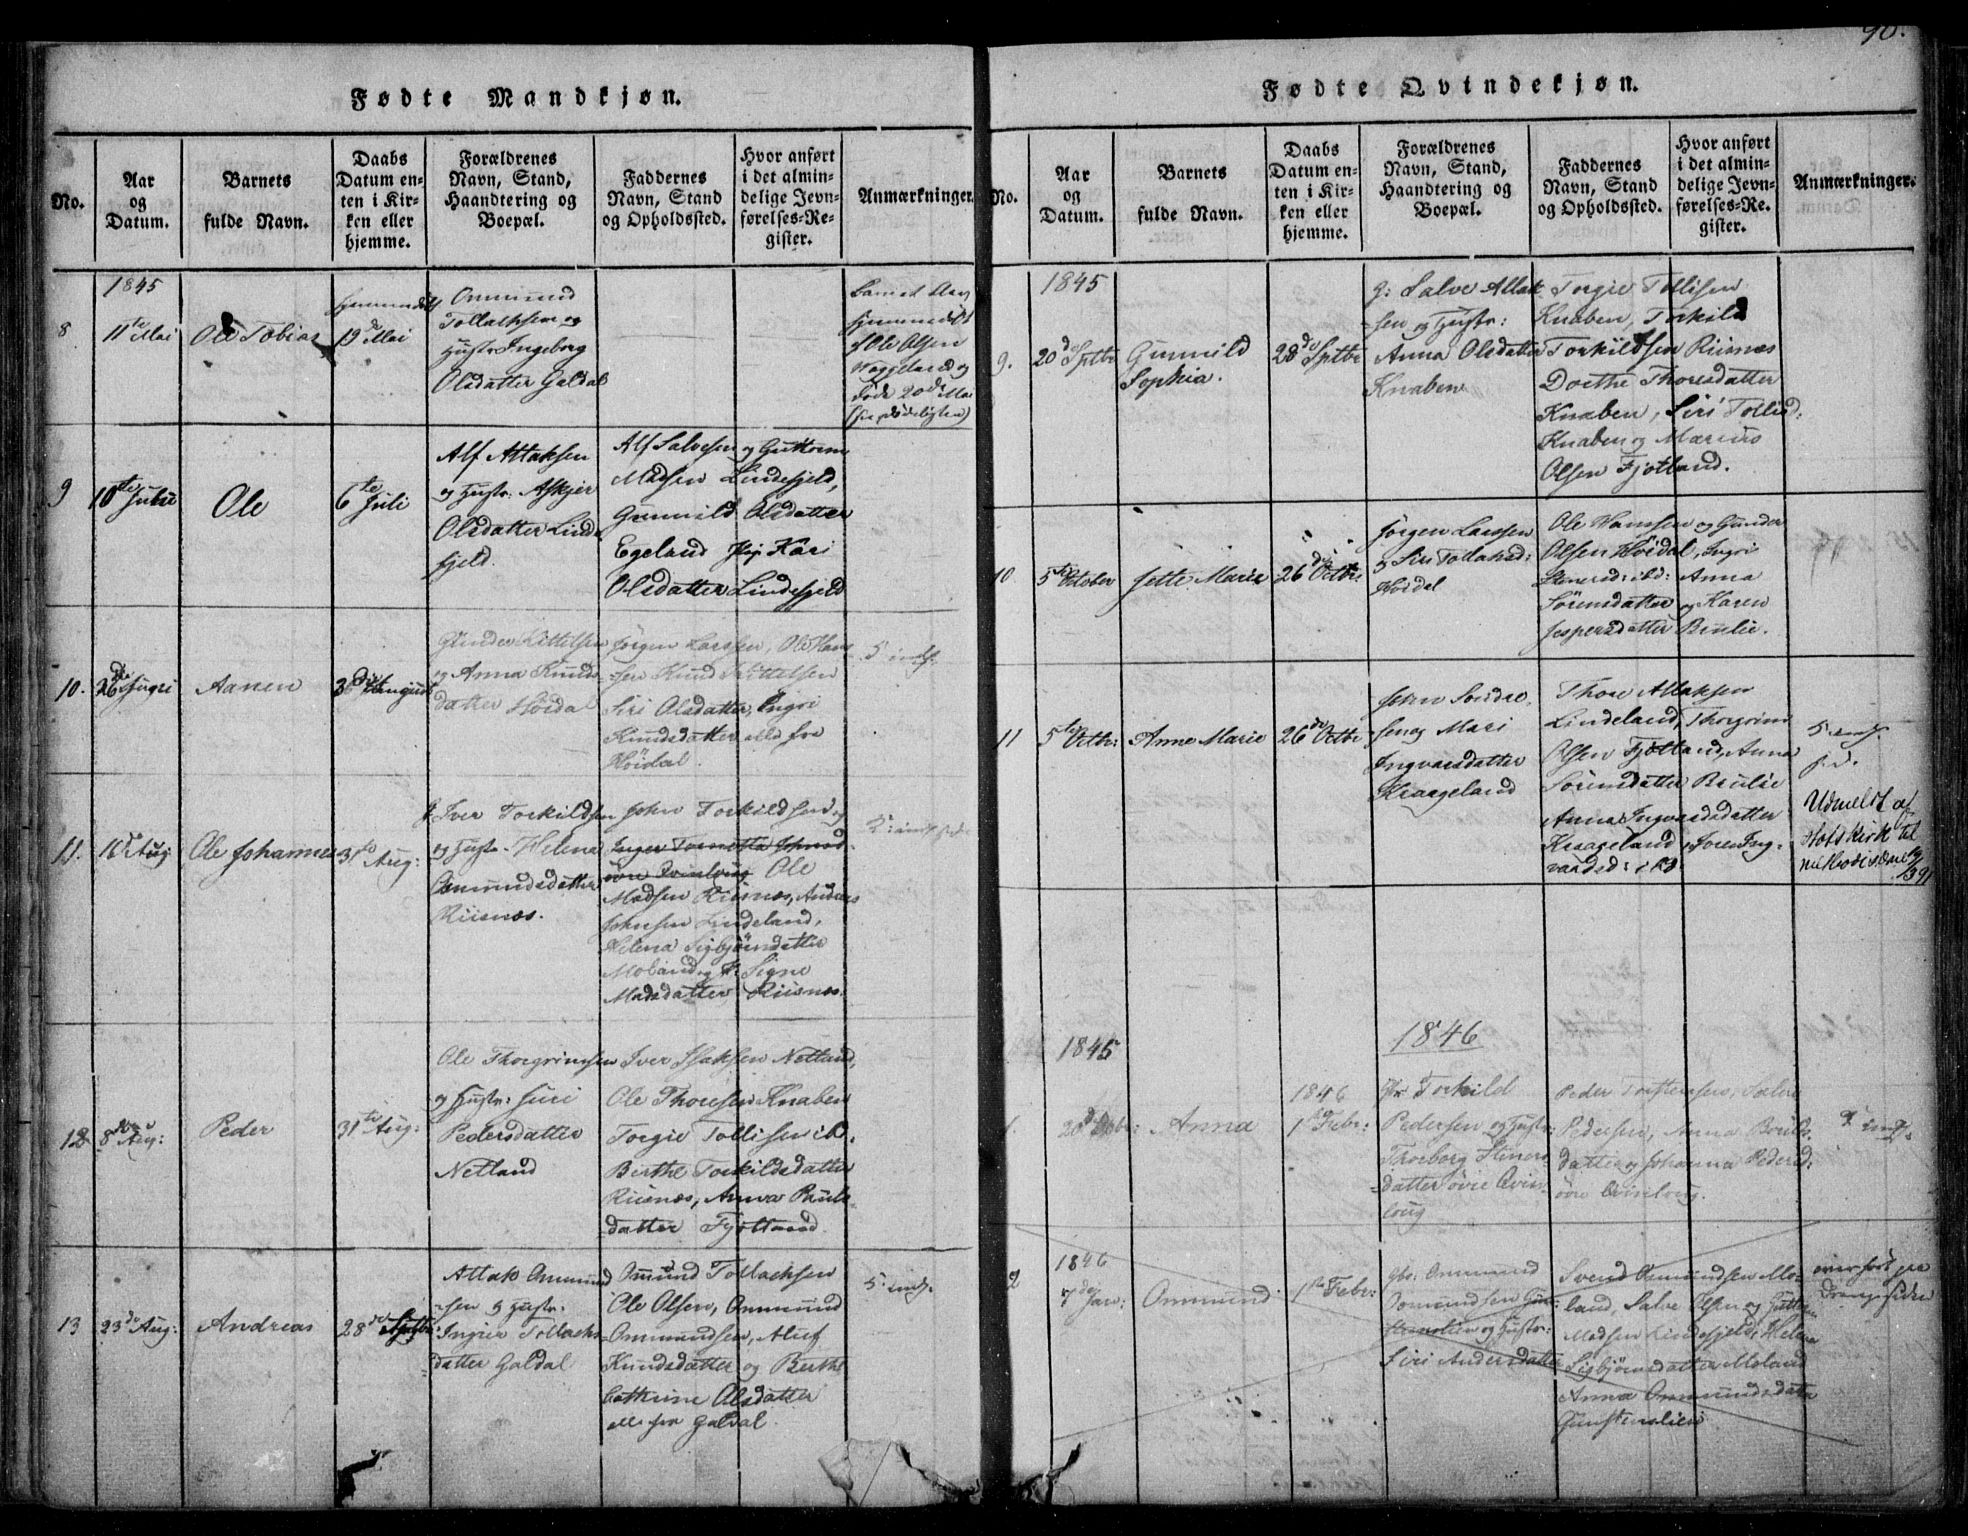 90.
Fødte Mandkjøn.
No.
Aar
og
Datum.
Barnets
fulde Navn.
Daabs
Datum en-
ten i Kir-
ken eller
hjemme.
Forældrenes
Navn, Stand,
Haandtering og
Boepæl.
Faddernes
Navn, Stand
og Opholdssted.
Hvor anført
i det almin-
delige Jevn-
førelses-Re-
gister.
Anmærkninger.
8
1845
11te Mai
Ole Tobias
19de Mai
Ommund
Tollachsen og
Hustr Ingeborg
Olsdatter Galdal
hjemmedøbt
af Ole Olsen
Haggeland og
døde 20de Mai
9
10te Juni
Ole
6te
Juli
Alf Attaksen
og Hustr: Askjer
Olsdatter Linde
fjeld.
Alf Salvesen og Guttorm
Madsen Lindefjeld,
Gunnild Olsdatter
Egeland Kari
Olsdatter Lindefjeld
10.
Aanen
Gunder Kittelsen
og Anna Knuds-
datter Høidal
Jørgen Larssen, Ole Han-
-sen Knud Kittelsen
Siri Olsdatter, Ingri
Knudsdatter alle fra
Høidal.
11.
16de Aug
Ole Johannes
31te Aug:
Iver Torkildsen
og Hustr. Helena
Osmundsdatter
Riisnæs.
John Torkildsen og
øvre Qvinlaug Ole
Madsen Riisnæs, Anders
Johnsen Lindeland,
Helena Sigbjørnsdatter
Moland og Signe
Madsdatter Riisnæs.
12
8de Aug:
Peder
31te Aug:
Ole Thorgrimsen
og Hustr: Siri
Pedersdatter
Netland
Iver Isaksen Netland,
Ole Thoresen Knaben
Torgie Tollisen ibd.
Berthe Torkildsdatter
Riisnæs, Anna Pauls-
datter Fjotland.
13
23de Aug:
Andreas
28de Septbr:
Attak Ommund
-sen og Hustr:
Ingier Tollachs-
datter Galdal
Ommund Tollachsen
Ole Olsen, Ommund
Ommundsen,
Knudsdatter og Berthe
Cathrine Olsdatter
alle fra Galdal.
5 indf.
Fødte Qvindekjøn.
No.
Aar
og
Datum.
Barnets
fulde Navn.
Daabs
Datum en-
ten i Kir-
ken eller
hjemme.
Forældrenes
Navn, Stand,
Haandtering og
Boepæl.
Faddernes
Navn, Stand
og Opholdssted.
Hvor anført
i det almin-
delige Jevn-
førelses-Re-
gister.
Anmærkninger.
9.
1845
20de Septbr
Gunnild
Sophia.
28de Septbr
Salve Attak
-sen og Hustr:
Anna Olsdatter
Knaben
Torgie Tollisen
Knaben, Torkild
Torkildsen Riisnæs
Dorthe Thoresdatter
Knaben, Siri Tollisd:
Knaben og Marius
Olsen Fjotland.
10.
5te October
Jette Marie
26de Octbr
Jørgen Larssen
og Siri Tollaksd:
Høidal
Ole Hanssen og Gunder
Olsen Høidal, Ingri
Stenersd: ibd: Anna
Sørensdatter og Karen
Jespersdatter Briulie.
11
5te Octbr:
Anne Marie
26de Octbr
John Sondre-
sen og Mari
Ingvarsdatter
Kraageland
Thore Attaksen
Lindeland, Thorgrim
Olsen Fjotland, Anna
Sørensdatter Briulie
Anna Ingvardsdatter
Kraageland, Søren Ing-
vardsd: ibd.
5 indf.
Udmeldt af
Statskirk til
1846
1.
1845
Anna
1846
1ste Febr:
Torkild
Pedersen og Hustr:
Thorborg Steners-
datter øvre Qvin-
loug
Peder Torstensen,
Pedersen, Anna
datter og Johanna Pedersd:
øvre Qvinloug.
5 indf.
2
1846
7de Jan:
Ommund
1ste Febr:
Gbr: Ommund
Osmundsen
og Hustr:
Siri Andersdatter
Svend Osmundsen Mo-
land, Salve Olsen og Guttorm
Madsen Lindefjeld, Helena
Sigbjørnsdatter Moland
Anna Ommundsdatr
Gunstenslien
overført paa
Drengesiden